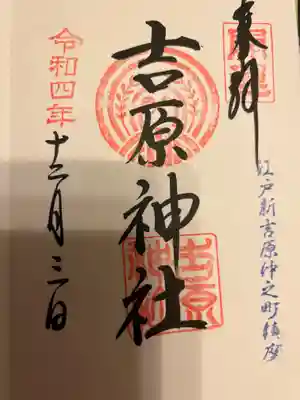 奉拝
江戸新吉原仲之町鎮座
吉原神社
吉原
神社
令和四年
十二月三日